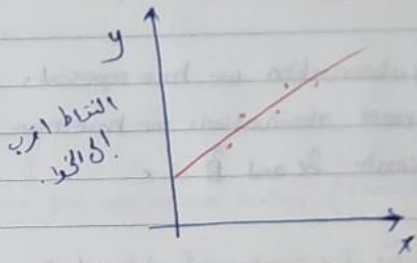 y
النقاط اقرب
إلى الخط.
x